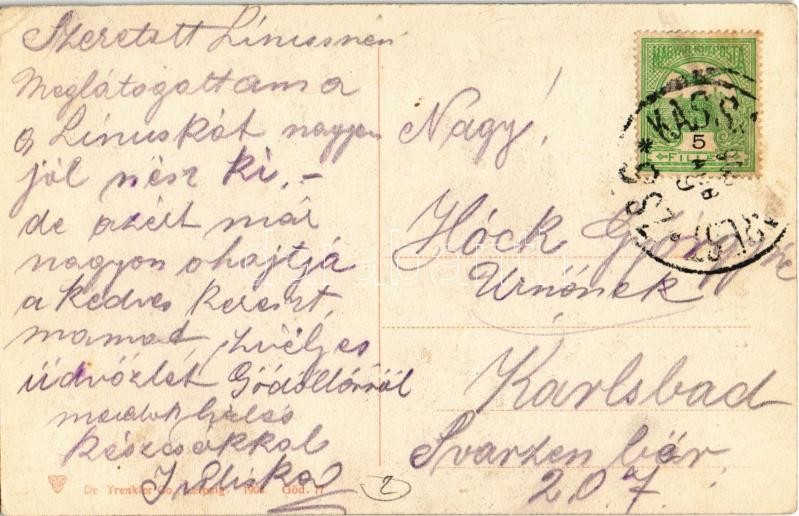 Szeretett Linusnéni
Meglátogattam a
a Linuskát nagyon
jól nész ki, –
de azért már
nagyon ohajtjá
a kedves kereszt
mamad, szvéljes
üdvözlet Gödöllőről
maradok
kézcsokkal
Juliska
Nagy!
Höck Györgyné
Urnőnek
Karlsbad
Svarzen bér
207.
MAGYAR KIR. POSTA
5
FILLÉR
KASS
Dr Trenkler Co., Leipzig. 190 Göd. 17
2
darabanth